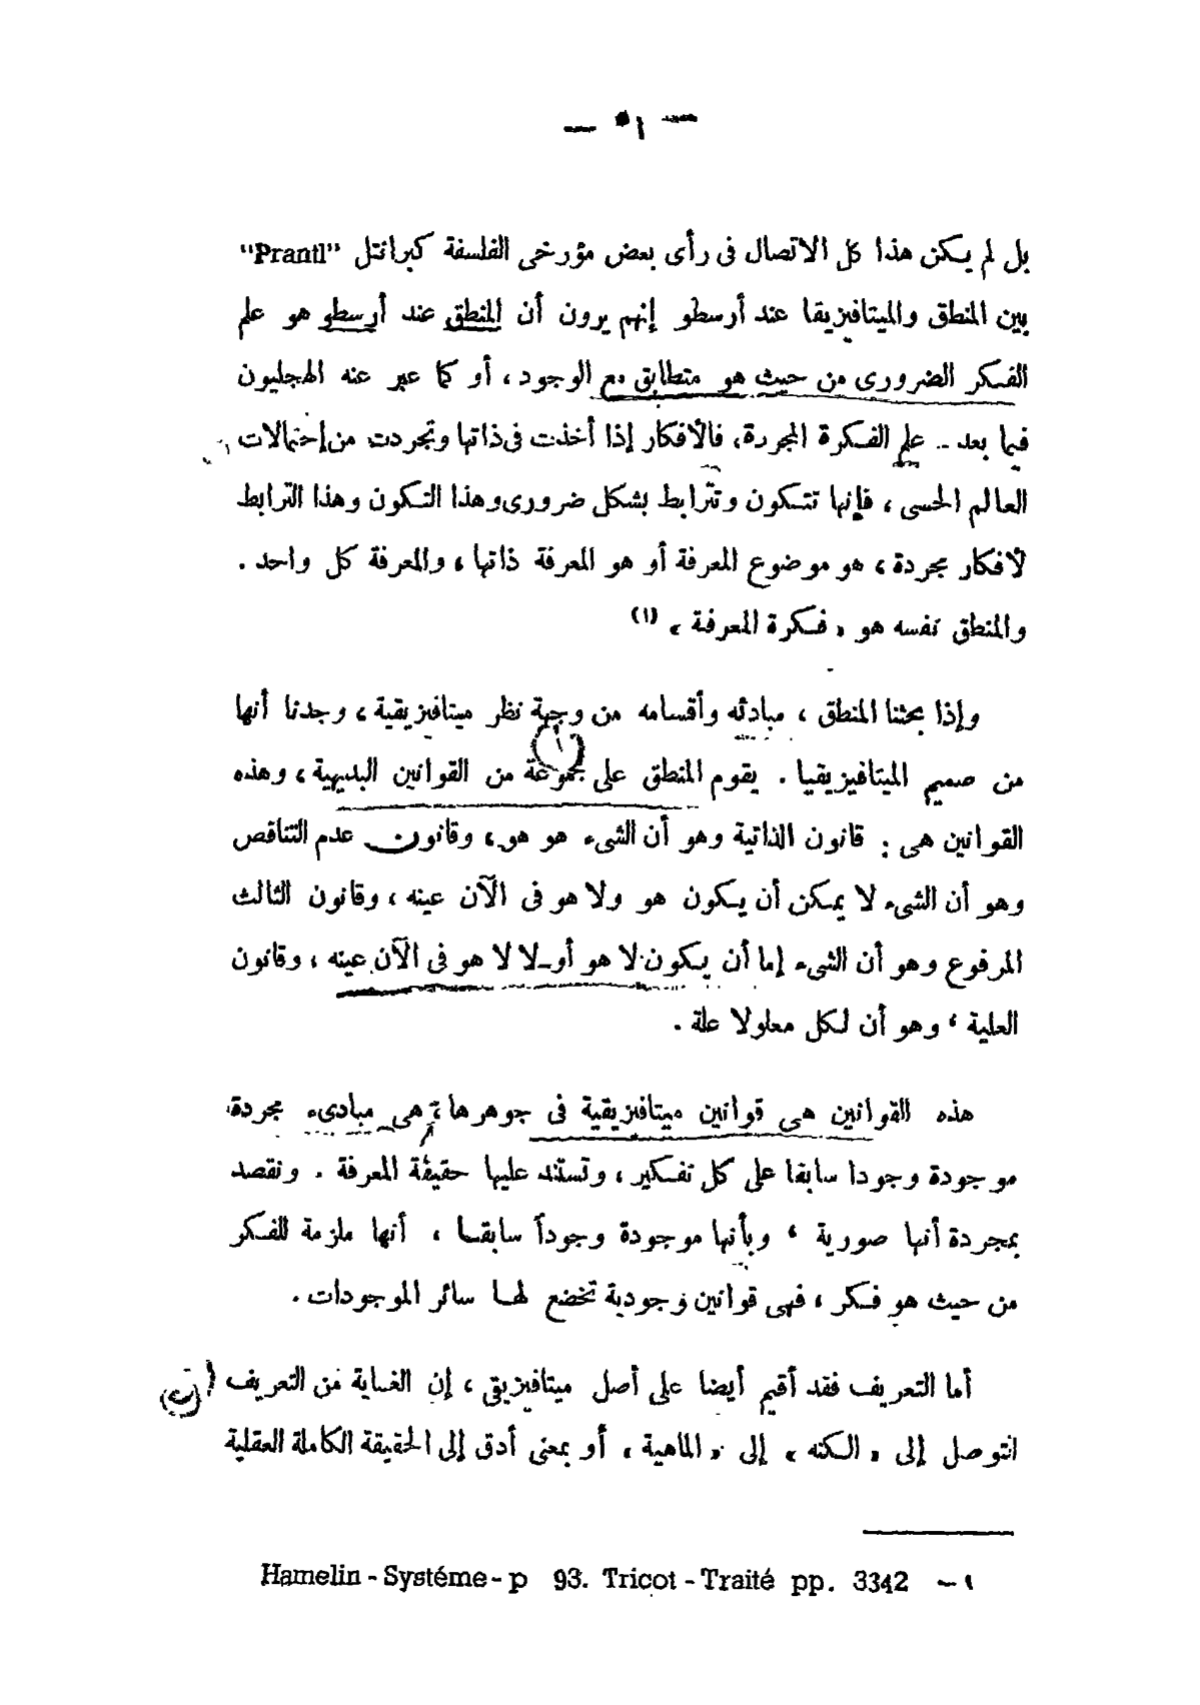 — ٥١ —
بل لم يكن هذا كل الاتصال فى رأى بعض مؤرخى الفلسفة كبرانتل "Prantl"
بين المنطق والميتافيزيقا عند أرسطو إنهم يرون أن المنطق عند أرسطو هو علم
الفكر الضرورى من حيث هو متطابق مع الوجود، أو كما عبر عنه الهجليون
فيما بعد - علم الفكرة المجردة، فالأفكار إذا أخذت فى ذاتها وتجردت من إحتمالات
العالم الحسى، فإنها تتكون وتترابط بشكل ضرورى وهذا التكون وهذا الترابط
لأفكار مجردة، هو موضوع المعرفة أو هو المعرفة ذاتها، والمعرفة كل واحد.
والمنطق نفسه هو «فكرة المعرفة» (١)
وإذا بحثنا المنطق، مبادئه وأقسامه من وجهة نظر ميتافيزيقية، وجدنا أنها
من صميم الميتافيزيقيا. يقوم المنطق على مجموعة من القوانين البديهية، وهذه
القوانين هى: قانون الذاتية وهو أن الشىء هو هو، وقانون عدم التناقص
وهو أن الشىء لا يمكن أن يكون هو ولا هو فى الآن عينه، وقانون الثالث
المرفوع وهو أن الشىء إما أن يكون لا هو أو لا لا هو فى الآن عينه، وقانون
العلية، وهو أن لكل معلولا علة.
هذه القوانين هى قوانين ميتافيزيقية فى جوهرها، هى مبادىء مجردة
موجودة وجودا سابقا على كل تفكير، وتستند عليها حقيقة المعرفة. ونقصد
بمجردة أنها صورية، وبأنها موجودة وجوداً سابقا، أنها ملزمة للفكر
من حيث هو فكر، فهى قوانين وجودية تخضع لها سائر الموجودات.
أما التعريف فقد أقيم أيضا على أصل ميتافيزيقى، إن الغاية من التعريف
التوصل إلى «الكنه» إلى «الماهية» أو بمعنى أدق إلى الحقيقة الكاملة العقلية
١ — Hamelin - Systéme - p 93. Tricot - Traité pp. 3342